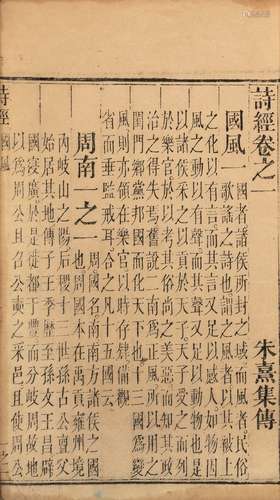 詩經卷之一
朱熹集傳
國風一
國者諸侯所封之域而風者民俗
歌謠之詩也謂之風者以其被上
之化以有言而其言又足以感人如物因
風之動以有聲而其聲又足以動物也是
以諸侯采之以貢於天子天子受之而列
於樂官於以考其俗尚之美惡而知其政
治之得失焉舊說二南為正風所以用之
閨門鄉黨邦國而化天下也十三國為變
風則亦領在樂官以時存肄備觀
省而垂監戒耳合之凡十五國云
周南一之一
周國名南南方諸侯之國
也周國本在禹貢雍州境
內岐山之陽后稷十三世孫古公亶父
始居其地傳子王季歷至孫文王昌辟
國寖廣於是徙都于豐而分岐周故地
以為周公旦召公奭之采邑
詩經
國風